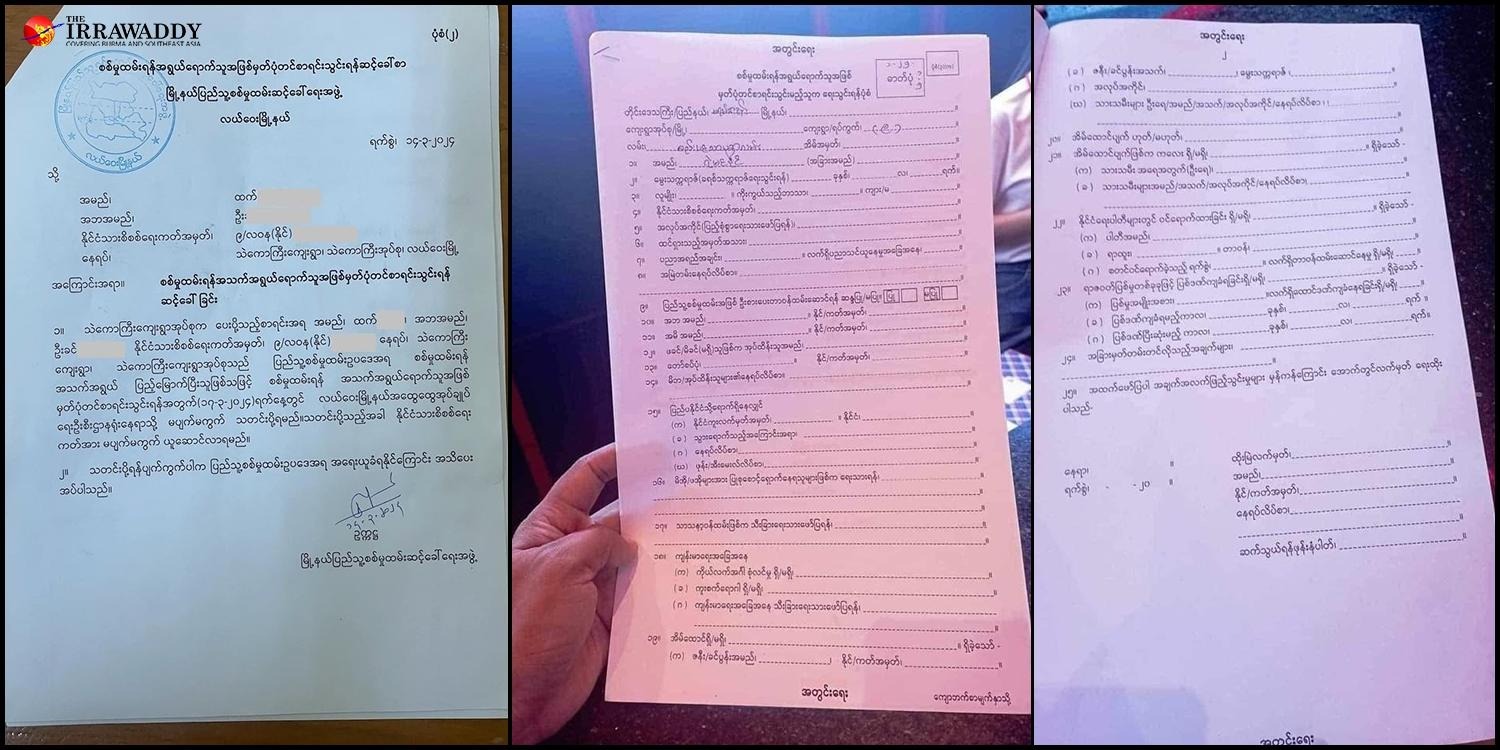 THE
IRRAWADDY
COVERING BURMA AND SOUTHEAST ASIA
ပုံစံ(၂)
စစ်မှုထမ်းရန်အရွယ်ရောက်သူအဖြစ်မှတ်ပုံတင်စာရင်းသွင်းရန်ဆင့်ခေါ်စာ
မြို့နယ်ပြည်သူ့စစ်မှုထမ်းဆင့်ခေါ်ရေးအဖွဲ့
လယ်ဝေးမြို့နယ်
ရက်စွဲ၊ ၁၄-၃-၂၀၂၄
သို့
အမည်၊ ထက်
အဘအမည်၊ ဦး
နိုင်ငံသားစိစစ်ရေးကတ်အမှတ်၊ ၉/လဝန(နိုင်)
နေရပ်၊ သဲကောကြီးကျေးရွာ၊ သဲကောကြီးအုပ်စု၊ လယ်ဝေးမြို့
အကြောင်းအရာ။ စစ်မှုထမ်းရန်အသက်အရွယ်ရောက်သူအဖြစ်မှတ်ပုံတင်စာရင်းသွင်းရန်
ဆင့်ခေါ်ခြင်း
၁။ သဲကောကြီးကျေးရွာအုပ်စုက ပေးပို့သည့်စာရင်းအရ အမည်၊ ထက် ၊ အဘအမည်၊
ဦးခင် နိုင်ငံသားစိစစ်ရေးကတ်အမှတ်၊ ၉/လဝန(နိုင်) နေရပ်၊ သဲကောကြီး
ကျေးရွာ၊ သဲကောကြီးကျေးရွာအုပ်စုသည် ပြည်သူ့စစ်မှုထမ်းဥပဒေအရ စစ်မှုထမ်းရန်
အသက်အရွယ် ပြည့်မြောက်ပြီးသူဖြစ်သဖြင့် စစ်မှုထမ်းရန် အသက်အရွယ်ရောက်သူအဖြစ်
မှတ်ပုံတင်စာရင်းသွင်းရန်အတွက်(၁၇-၃-၂၀၂၄)ရက်နေ့တွင် လယ်ဝေးမြို့နယ်အထွေထွေအုပ်ချုပ်
ရေးဦးစီးဌာနရုံးနေရာသို့ မပျက်မကွက် သတင်းပို့ရမည်။သတင်းပို့သည့်အခါ နိုင်ငံသားစိစစ်ရေး
ကတ်အား မပျက်မကွက် ယူဆောင်လာရမည်။
၂။ သတင်းပို့ရန်ပျက်ကွက်ပါက ပြည်သူ့စစ်မှုထမ်းဥပဒေအရ အရေးယူခံရနိုင်ကြောင်း အသိပေး
အပ်ပါသည်။
ဥက္ကဋ္ဌ
မြို့နယ်ပြည်သူ့စစ်မှုထမ်းဆင့်ခေါ်ရေးအဖွဲ့
လယ်ဝေးမြို့နယ်
အတွင်းရေး
စစ်မှုထမ်းရန်အရွယ်ရောက်သူအဖြစ်
မှတ်ပုံတင်စာရင်းသွင်းမည့်သူက ရေးသွင်းရန်ပုံစံ
ဓာတ်ပုံ
တိုင်းဒေသကြီး/ပြည်နယ်၊ မြို့နယ်၊
ကျေးရွာအုပ်စု/မြို့၊ ကျေးရွာ/ရပ်ကွက်၊
လမ်း၊ အိမ်အမှတ်၊
၁။ အမည်၊ (အခြားအမည်)
၂။ မွေးသက္ကရာဇ်(ခရစ်သက္ကရာဇ်ရေးသွင်းရန်) ခုနှစ်၊ လ၊ ရက်။
၃။ လူမျိုး၊ ။ ကိုးကွယ်သည့်ဘာသာ၊ ။ ကျား/မ
၄။ နိုင်ငံသားစိစစ်ရေးကတ်အမှတ်၊
၅။ အလုပ်အကိုင်(ပြည့်စုံစွာရေးသားဖော်ပြရန်)၊
၆။ ထင်ရှားသည့်အမှတ်အသား၊
၇။ ပညာအရည်အချင်း၊ ။ လက်ရှိပညာသင်ယူနေမှုအခြေအနေ၊
၈။ အမြဲတမ်းနေရပ်လိပ်စာ၊
၉။ ပြည်သူ့စစ်မှုထမ်းအဖြစ် ဦးစားပေးတာဝန်ထမ်းဆောင်ရန် ဆန္ဒပြု/မပြု။ ပြု မပြု
၁၀။ အဘ အမည်၊ ။ နိုင်/ကတ်အမှတ်၊
၁၁။ အမိ အမည်၊ ။ နိုင်/ကတ်အမှတ်၊
၁၂။ ဖခင်/မိခင်(မရှိ)သူဖြစ်က အုပ်ထိန်းသူအမည်၊
၁၃။ တော်စပ်ပုံ၊ ။ နိုင်/ကတ်အမှတ်၊
၁၄။ မိဘ/အုပ်ထိန်းသူများ၏နေရပ်လိပ်စာ၊
၁၅။ ပြည်ပနိုင်ငံသို့ရောက်ရှိနေလျှင်
(က) နိုင်ငံကူးလက်မှတ်အမှတ်၊ ။ နိုင်ငံ၊
(ခ) သွားရောက်သည့်အကြောင်းအရာ၊
(ဂ) နေရပ်လိပ်စာ၊
(ဃ) ဖုန်း/အီးမေးလ်လိပ်စာ၊
၁၆။ မိအို/ဖအိုများအား ပြုစုစောင့်ရှောက်နေရသူများဖြစ်က ရေးသားရန်၊
၁၇။ သာသနာ့ဝန်ထမ်းဖြစ်က သီးခြားရေးသားဖော်ပြရန်၊
၁၈။ ကျန်းမာရေးအခြေအနေ
(က) ကိုယ်လက်အင်္ဂါ စုံလင်မှု ရှိ/မရှိ၊
(ခ) ကူးစက်ရောဂါ ရှိ/မရှိ၊
(ဂ) ကျန်းမာရေးအခြေအနေ သီးခြားရေးသားဖော်ပြရန်၊
၁၉။ အိမ်ထောင်ရှိ/မရှိ၊ ။ ရှိခဲ့သော် -
(က) ဇနီး/ခင်ပွန်းအမည်၊ ၊ နိုင်/ကတ်အမှတ်၊
အတွင်းရေး
ကျောဘက်စာမျက်နှာသို့
အတွင်းရေး
၂
(ခ) ဇနီး/ခင်ပွန်းအသက်၊ ၊ မွေးသက္ကရာဇ်၊
(ဂ) အလုပ်အကိုင်၊
(ဃ) သားသမီးများ ဦးရေ/အမည်/အသက်/အလုပ်အကိုင်/နေရပ်လိပ်စာ၊
၂၀။ အိမ်ထောင်ပျက် ဟုတ်/မဟုတ်၊
၂၁။ အိမ်ထောင်ပျက်ဖြစ်က ကလေး ရှိ/မရှိ၊ ။ ရှိခဲ့သော်
(က) သားသမီး အရေအတွက်(ဦးရေ)၊
(ခ) သားသမီးများအမည်/အသက်/အလုပ်အကိုင်/နေရပ်လိပ်စာ၊
၂၂။ နိုင်ငံရေးပါတီများတွင် ဝင်ရောက်ထားခြင်း ရှိ/မရှိ၊ ။ ရှိခဲ့သော် -
(က) ပါတီအမည်၊
(ခ) ရာထူး၊ ။ တာဝန်၊
(ဂ) စတင်ဝင်ရောက်ခဲ့သည့် ရက်စွဲ၊ ။ လက်ရှိတာဝန်ထမ်းဆောင်နေမှု ရှိ/မရှိ၊
၂၃။ ရာဇဝတ်ပြစ်မှုတစ်ခုခုဖြင့် ပြစ်ဒဏ်ကျခံရခြင်းရှိ/မရှိ၊ ။ ရှိခဲ့သော် -
(က) ပြစ်မှုအမျိုးအစား၊ ။ လက်ရှိထောင်ဒဏ်ကျခံနေရခြင်းရှိ/မရှိ၊
(ခ) ပြစ်ဒဏ်ကျခံရမည့်ကာလ၊ ခုနှစ်၊ လ၊ ရက်။
(ဂ) ပြစ်ဒဏ်ပြီးဆုံးမည့် ကာလ၊ ခုနှစ်၊ လ၊ ရက်။
၂၄။ အခြားမှတ်တမ်းတင်လိုသည့်အချက်များ၊
၂၅။ အထက်ဖော်ပြပါ အချက်အလက်ဖြည့်သွင်းမှုများ မှန်ကန်ကြောင်း အောက်တွင်လက်မှတ် ရေးထိုး
ပါသည်-
နေရာ၊
ရက်စွဲ၊ - -၂၀
ထိုးမြဲလက်မှတ်၊
အမည်၊
နိုင်/ကတ်အမှတ်၊
နေရပ်လိပ်စာ၊
ဆက်သွယ်ရန်ဖုန်းနံပါတ်၊
အတွင်းရေး